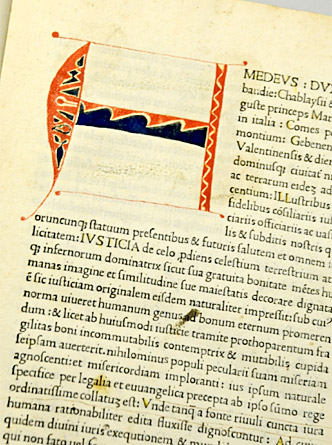 A
MEDEVS : DV
baudie: Chablaysii
guste princeps Mar
in italia : Comes p
montium: Gebenen
Valentinensis & dien
dominusq; ciuitat ni
ac terrarum eidez ad
centium: ILLustribus
fidelibus cōsiliariis
ciariis officiariis ac vas
is & subditis nostris q
oruncunq; statuum presentibus & futuris salutem et omnem
licitatem: IVSTICIA de celo ꝓdiens celestium terrestrium at
q; infernorum dominatrix sicut sua gratuita bonitate mētes h
manas imagine et similitudine sue maiestatis decorare dignata
ē sic iusticiam originalem eisdem naturaliter impressit: sub cu
norma uiueret humanum genus ad bonum eternum promeren
dum: & licet ab huiusmodi iusticie tramite prothoparentum fra
gilitas boni incommutabilis contemptrix & mutabilis cupida
seipsam auerterit. nihilominus populi peculiarii suam miseriam
agnoscenti: et misericordiam imploranti: ius ipsum naturale
specifice per legalia et euuangelica precepta ab ipso summo rege
ordinatissime collatuz est: Vnde tanq̄ a fonte riuuli cuncta iura
humana rationabiliter edita fluxisse dignoscuntur: Ad
quidem diuini iuris exequutionem & mundi
qui no fato vel